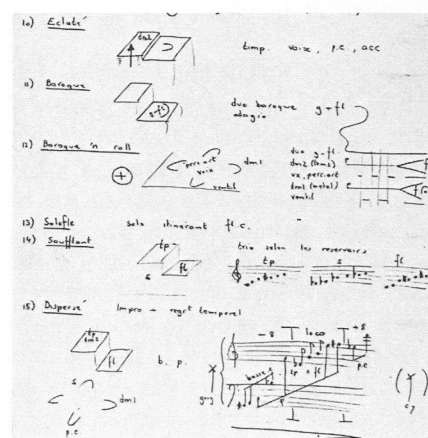 10) Eclaté
dm2
timp. voix, p.c., acc
11) Baroque
g+fl
duo baroque g+fl
adagio
12) Baroque 'n roll
perc.art
voix
dm1
ventil
duo g-fl
dm2 (tms)
vx, perc.art
dm1 (metal)
ventil
13) Solofle solo itinérant fl.c.
14) Soufflant
tp
fl
s
trio selon les reservoirs
tp s fl
15) Dispersé Impro + regrt temporel
tp
fl
b. p.
s
dm1
p.c.
- 8 loco + 8
tp + fl
p.c